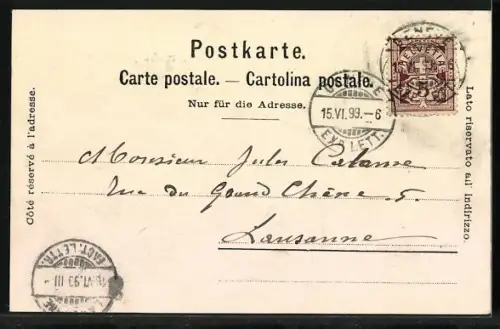 Postkarte.
Carte postale. — Cartolina postale.
Nur für die Adresse.
Côté réservé à l'adresse.
Lato riservato all' indirizzo.
HELVETIA
15.VI.99.–6
EXP. LETT.
Monsieur Jules
Rue du Grand Chêne 5.
Lausanne
FACT. LETTR.
VI.99. III